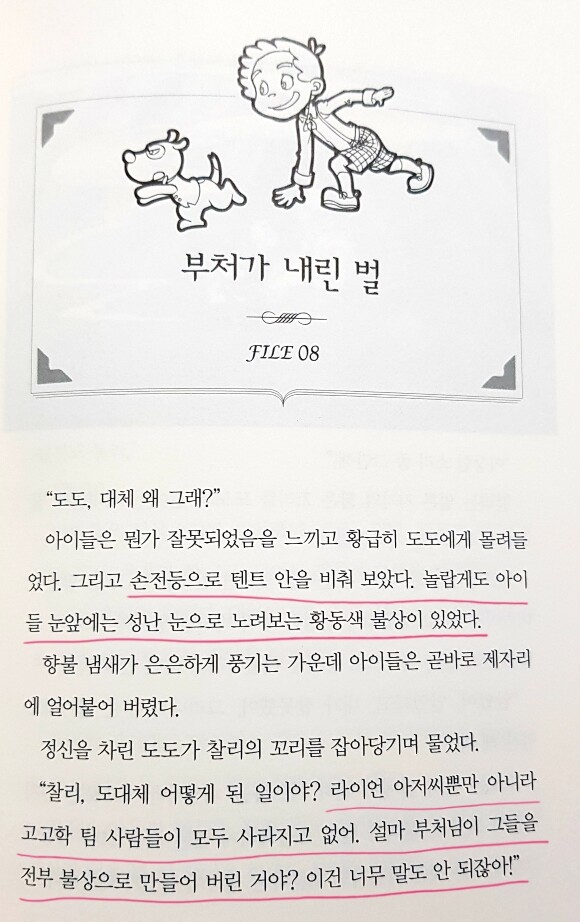 부처가 내린 벌
FILE 08
“도도, 대체 왜 그래?”
아이들은 뭔가 잘못되었음을 느끼고 황급히 도도에게 몰려들
었다. 그리고 손전등으로 텐트 안을 비춰 보았다. 놀랍게도 아이
들 눈앞에는 성난 눈으로 노려보는 황동색 불상이 있었다.
향불 냄새가 은은하게 풍기는 가운데 아이들은 곧바로 제자리
에 얼어붙어 버렸다.
정신을 차린 도도가 찰리의 꼬리를 잡아당기며 물었다.
“찰리, 도대체 어떻게 된 일이야? 라이언 아저씨뿐만 아니라
고고학 팀 사람들이 모두 사라지고 없어. 설마 부처님이 그들을
전부 불상으로 만들어 버린 거야? 이건 너무 말도 안 되잖아!”